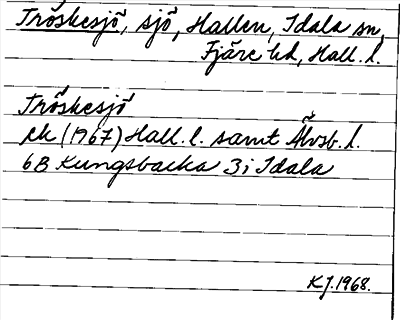 Tröskesjö, sjö, Hallen, Idala sn,
Fjäre hd, Hall. l.
Tröskesjö
ek (1967) Hall. l. samt Älvsb. l.
6B Kungsbacka 3i Idala
KJ. 1968.